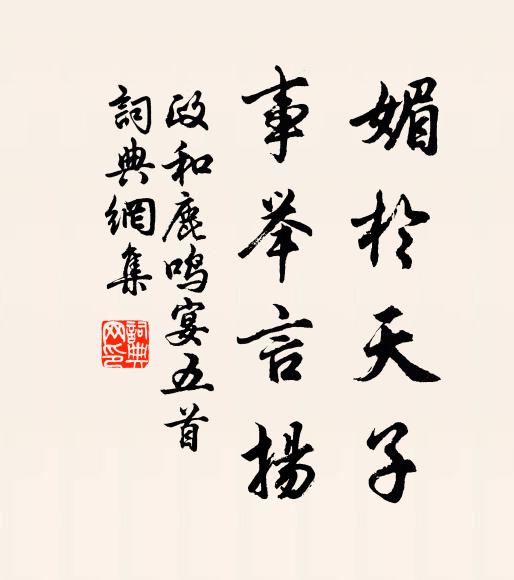 媚於天子
事举言揚
政和鹿鸣宴五首
詞典網集
詞典网印